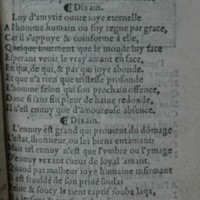 ¶Dixain.
Loy d'amytié ouure ioye eternelle
A l'homme humain où foy regne par grace,
Car il s'appuye & conforme à elle,
Quelque tourment que le monde luy face
Esperant veoir le vray amant en face,
En qui, de qui, & par qui ioye abonde.
Et que n'a rien que tristesse profonde
L'homme selon qui son prochain offence,
Donc si sans fin pleur de haine redonde,
Il n'est ennuy que d'amoureuse absence.
¶Dixain.
L'ennuy est grand qui prouient du dõmage
L'estat, honneur, ou les biens entamant:
Mais tel ennuy n'est que l'vmbre ou l'ymage
D'ennuy vexant cueur de loyal amant.
Quand par malheur ioye humaine infirmant
est fraudé de son priué soulas
& soucy le tient captif soubz laqz,